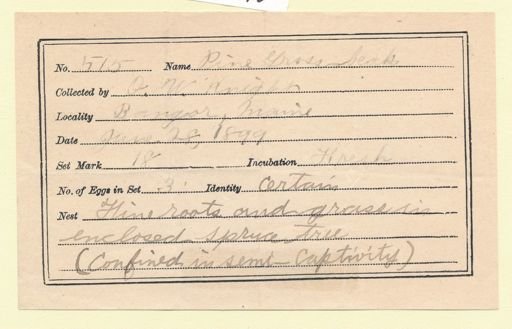 No. 515 Name Pine Grosbeak
Collected by O. W. Knight
Locality Bangor, Maine
Date June 28, 1899
Set Mark 18 Incubation Fresh
No. of Eggs in Set 3 Identity Certain
Nest Fine roots and grasses in
enclosed spruce tree
(Confined in semi-captivity)